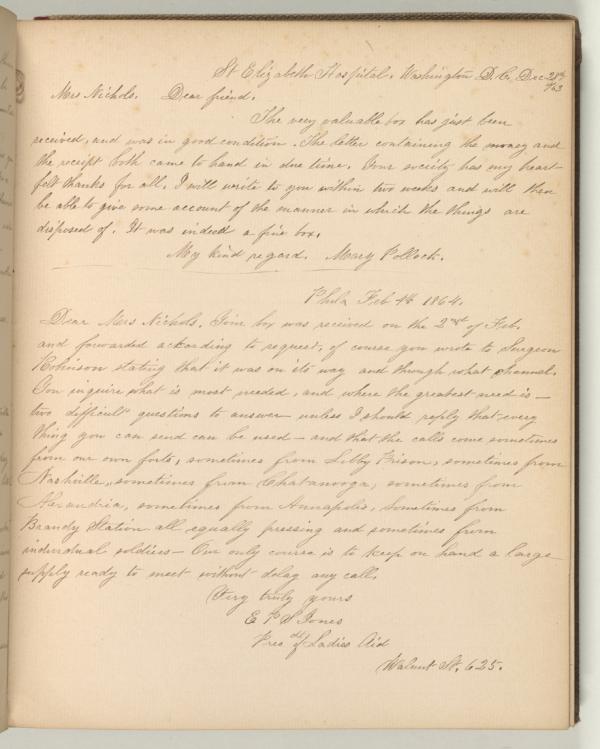 St Elizabeth Hospital. Washington D.C. Dec 28th
/63
Mrs Nichols. Dear friend.
The very valuable box has just been
received, and was in good condition. The letter containing the money and
the receipt both came to hand in due time. Your society has my heart-
felt thanks for all. I will write to you within two weeks and will then
be able to give some account of the manner in which the things are
disposed of. It was indeed a fine box.
My kind regard. Mary Pollock.
Phila Feb 4th 1864.
Dear Mrs Nichols. Your box was received on the 2nd of Feb.
and forwarded according to request, of course you wrote to Surgeon
Robinson stating that it was on its way and through what channel.
You inquire what is most needed, and where the greatest need is—
two difficult questions to answer unless I should reply that every
thing you can send can be used — and that the calls come sometimes
from our own forts, sometimes from Libby Prison, sometimes from
Nashville, sometimes from Chatanooga, sometimes from
Alexandria, sometimes from Annapolis, Sometimes from
Brandy Station all equally pressing and sometimes from
individual soldiers — Our only course is to keep on hand a large
supply ready to meet without delay any call.
Very truly yours
E P S Jones
Pres dt of Ladies Aid
Walnut St. 625.